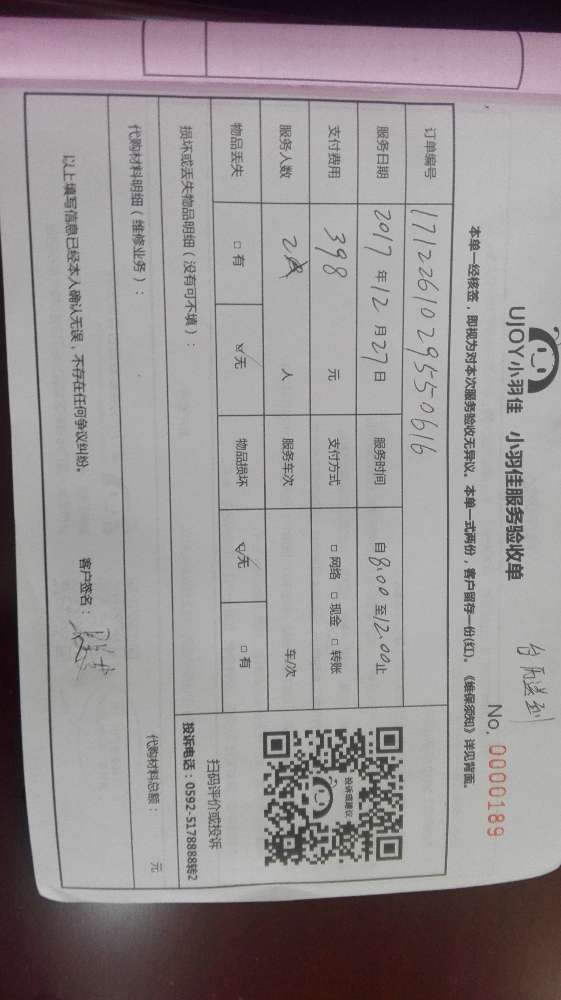 UJOY小羽佳 小羽佳服务验收单
No. 0000189
本单一经核签，即视为对本次服务验收无异议。本单一式两份，客户留存一份(红)。《维保须知》详见背面。
订单编号 1712261029550616
服务日期 2017 年 12 月 27 日 服务时间 自 8:00 至 12:00 止
支付费用 398 元 支付方式 □ 网络 □ 现金 □ 转账
服务人数 2 人 服务车次 车/次
物品丢失 □ 有 ☑ 无 物品损坏 ☑ 无 □ 有
投诉或建议
扫码评价或投诉
投诉电话：0592-5178888转2
损坏或丢失物品明细（没有可不填）：
代购材料明细（维修业务）：
代购材料总额： 元
以上填写信息已经本人确认无误，不存在任何争议纠纷。
客户签名：